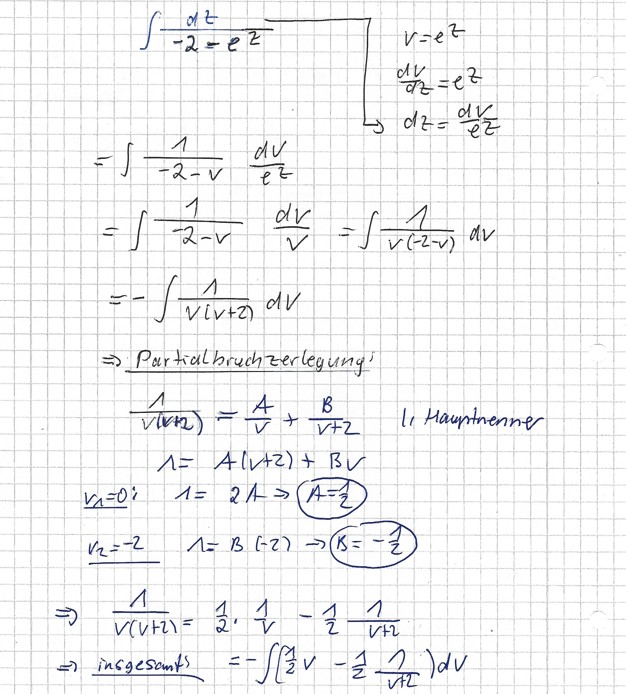 ∫ dz/(-2-e^z)
v=e^z
dv/dz=e^z
dz=dv/e^z
=∫ 1/(-2-v) dv/e^z
=∫ 1/(-2-v) dv/v =∫ 1/(v(-2-v)) dv
=-∫ 1/(v(v+2)) dv
⇒ Partialbruchzerlegung:
1/(v(v+2)) = A/v + B/(v+2) |· Hauptnenner
1= A(v+2) + Bv
v₁=0: 1= 2A ⇒ A=1/2
v₂=-2 1= B(-2) ⇒ B=-1/2
⇒ 1/(v(v+2)) = 1/2 · 1/v - 1/2 1/(v+2)
⇒ insgesamt: =-∫(1/2 v - 1/2 1/(v+2))dv